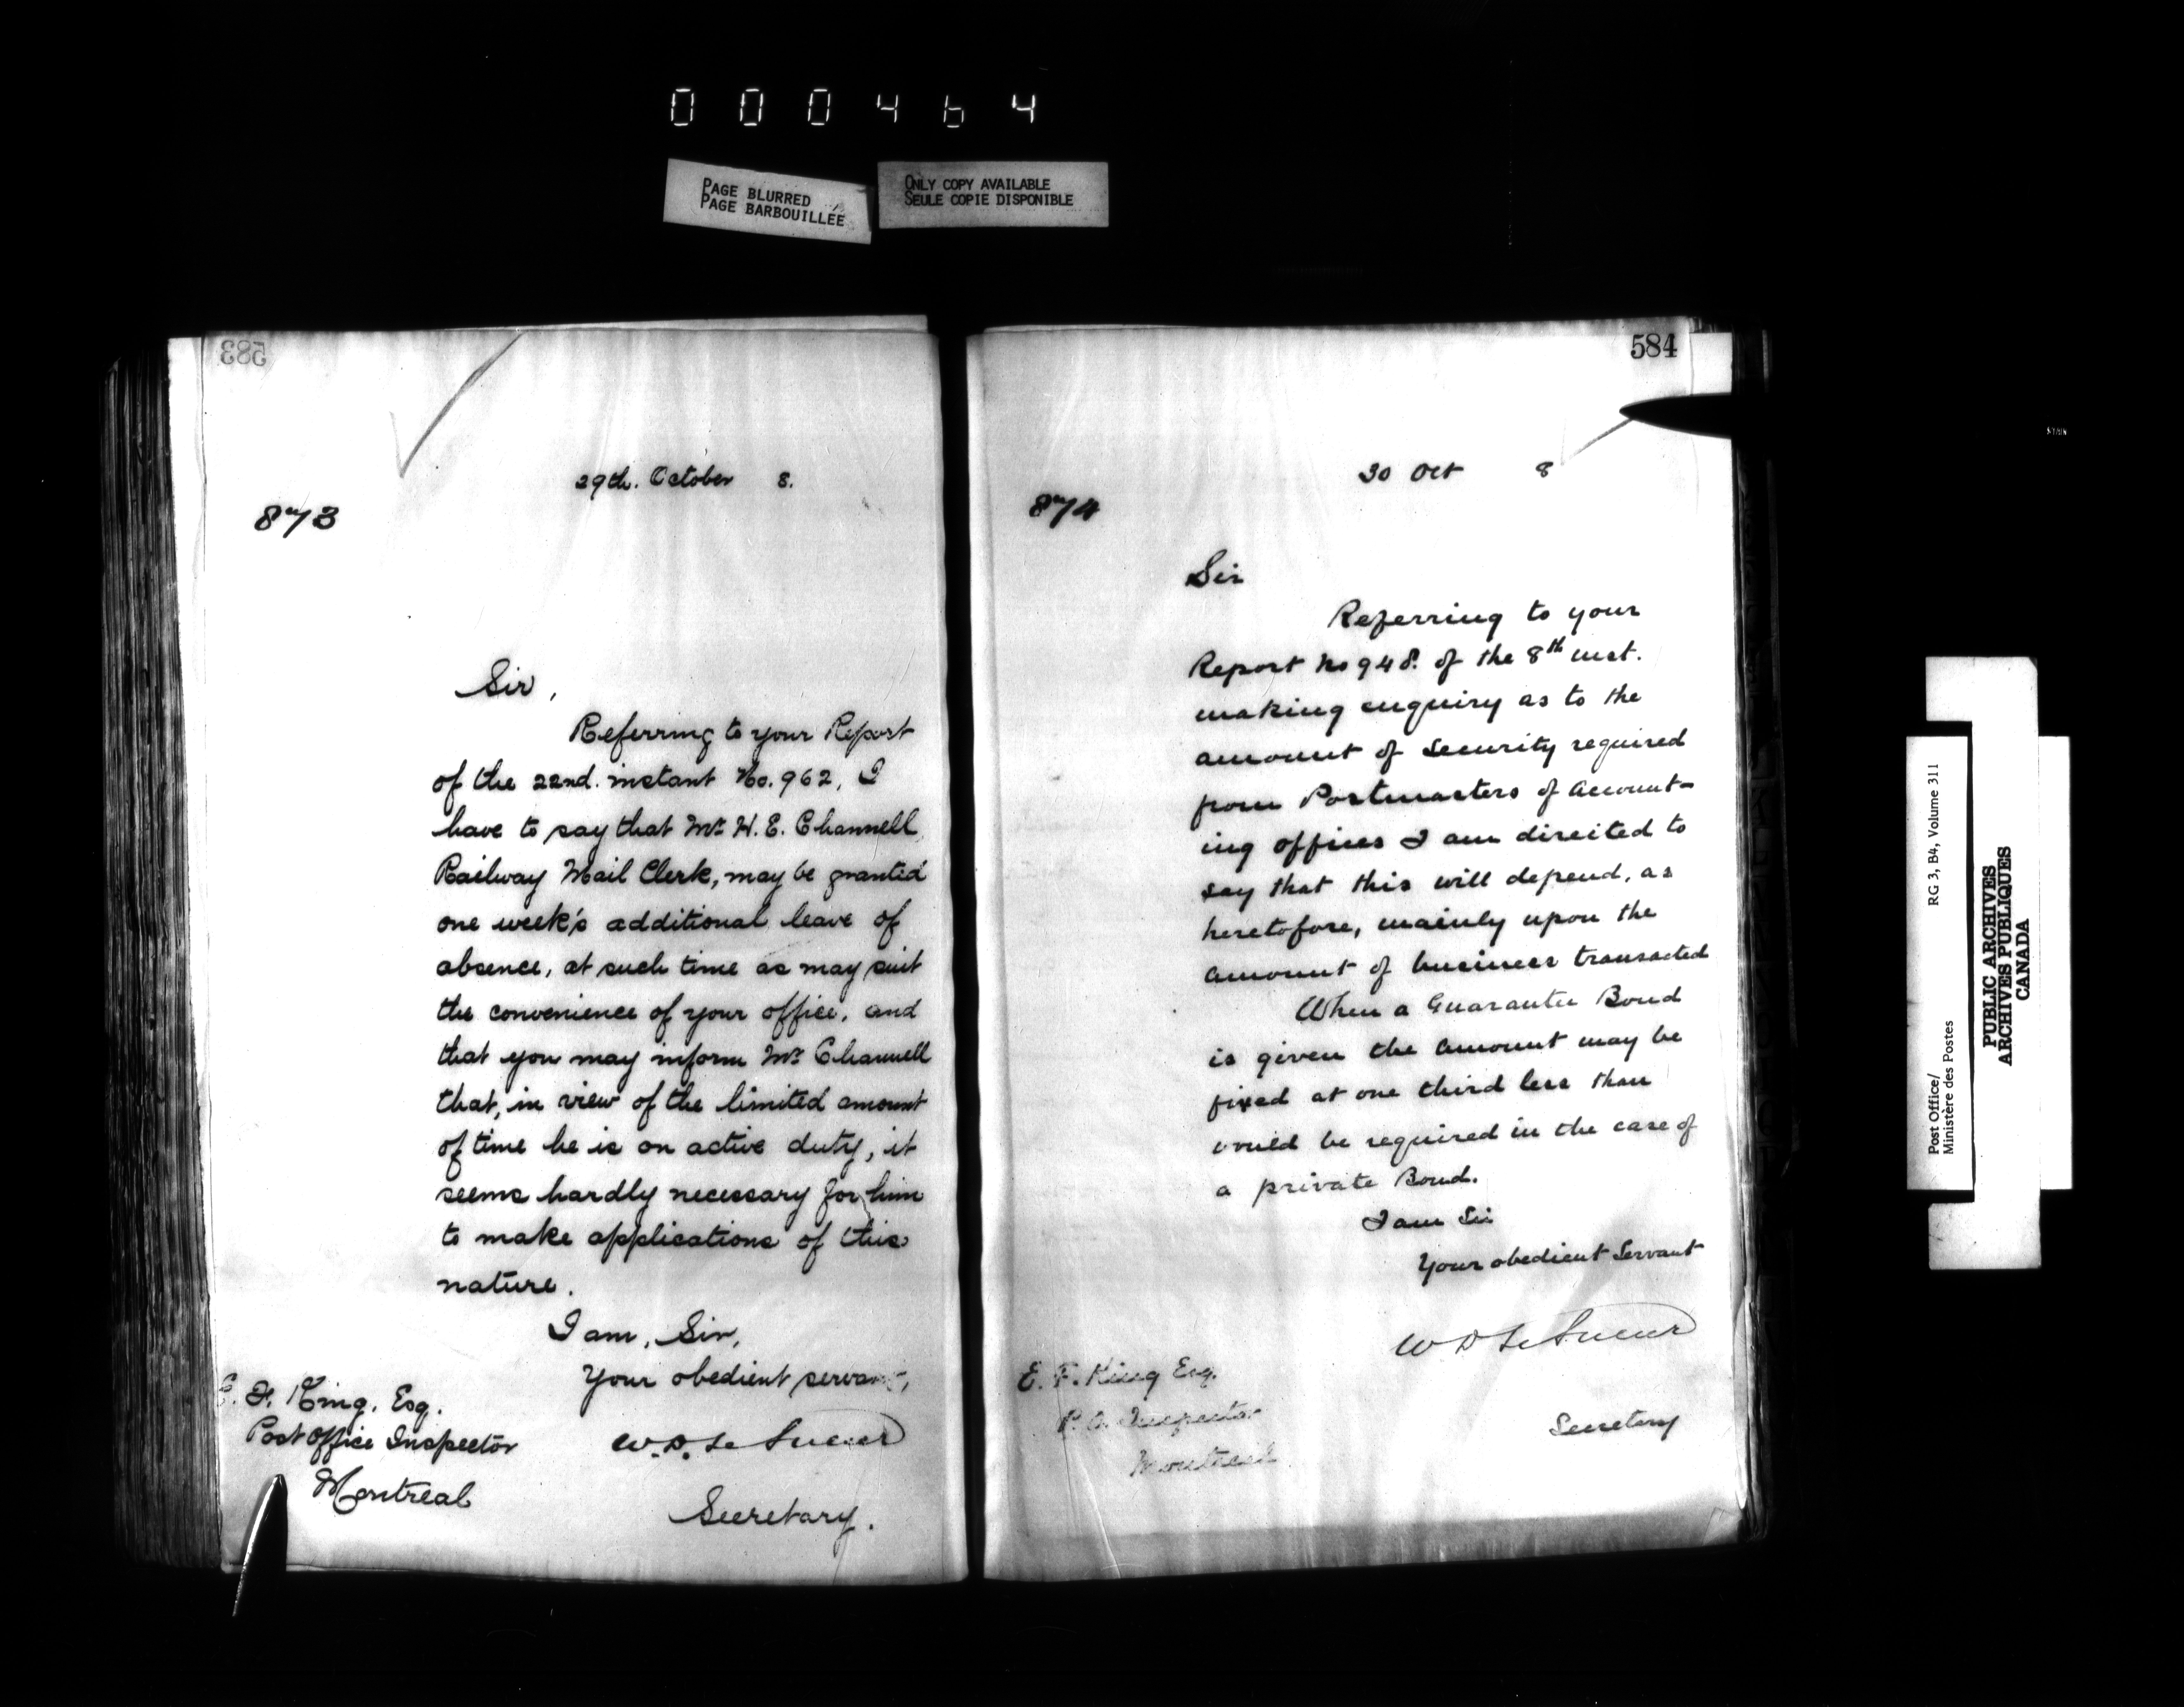 000464
PAGE BLURRED
PAGE BARBOUILLEE
ONLY COPY AVAILABLE
SEULE COPIE DISPONIBLE
583
29th. October 8.
873
Sir,
Referring to your Report
of the 22nd. instant No. 962, I
have to say that Mr. H. E. Channell
Railway Mail Clerk, may be granted
one week's additional leave of
absence, at such time as may suit
the convenience of your office, and
that you may inform Mr. Channell
that, in view of the limited amount
of time he is on active duty, it
seems hardly necessary for him
to make applications of this
nature.
I am, Sir,
Your obedient servant,
E. F. King, Esq.
Post Office Inspector
Montreal
W. D. Le Sueur
Secretary.
584
30 Oct 8
874
Sir
Referring to your
Report No 948. of the 8th inst.
making enquiry as to the
amount of security required
from Postmasters of Account-
ing offices I am directed to
say that this will depend, as
heretofore, mainly upon the
amount of business transacted
When a Guarantee Bond
is given the amount may be
fixed at one third less than
would be required in the case of
a private Bond.
I am Sir
Your obedient Servant
W D Le Sueur
E. F. King Esq.
P.O. Inspector
Montreal
Secretary
RG 3, B4, Volume 311
Post Office/
Ministère des Postes
PUBLIC ARCHIVES
ARCHIVES PUBLIQUES
CANADA